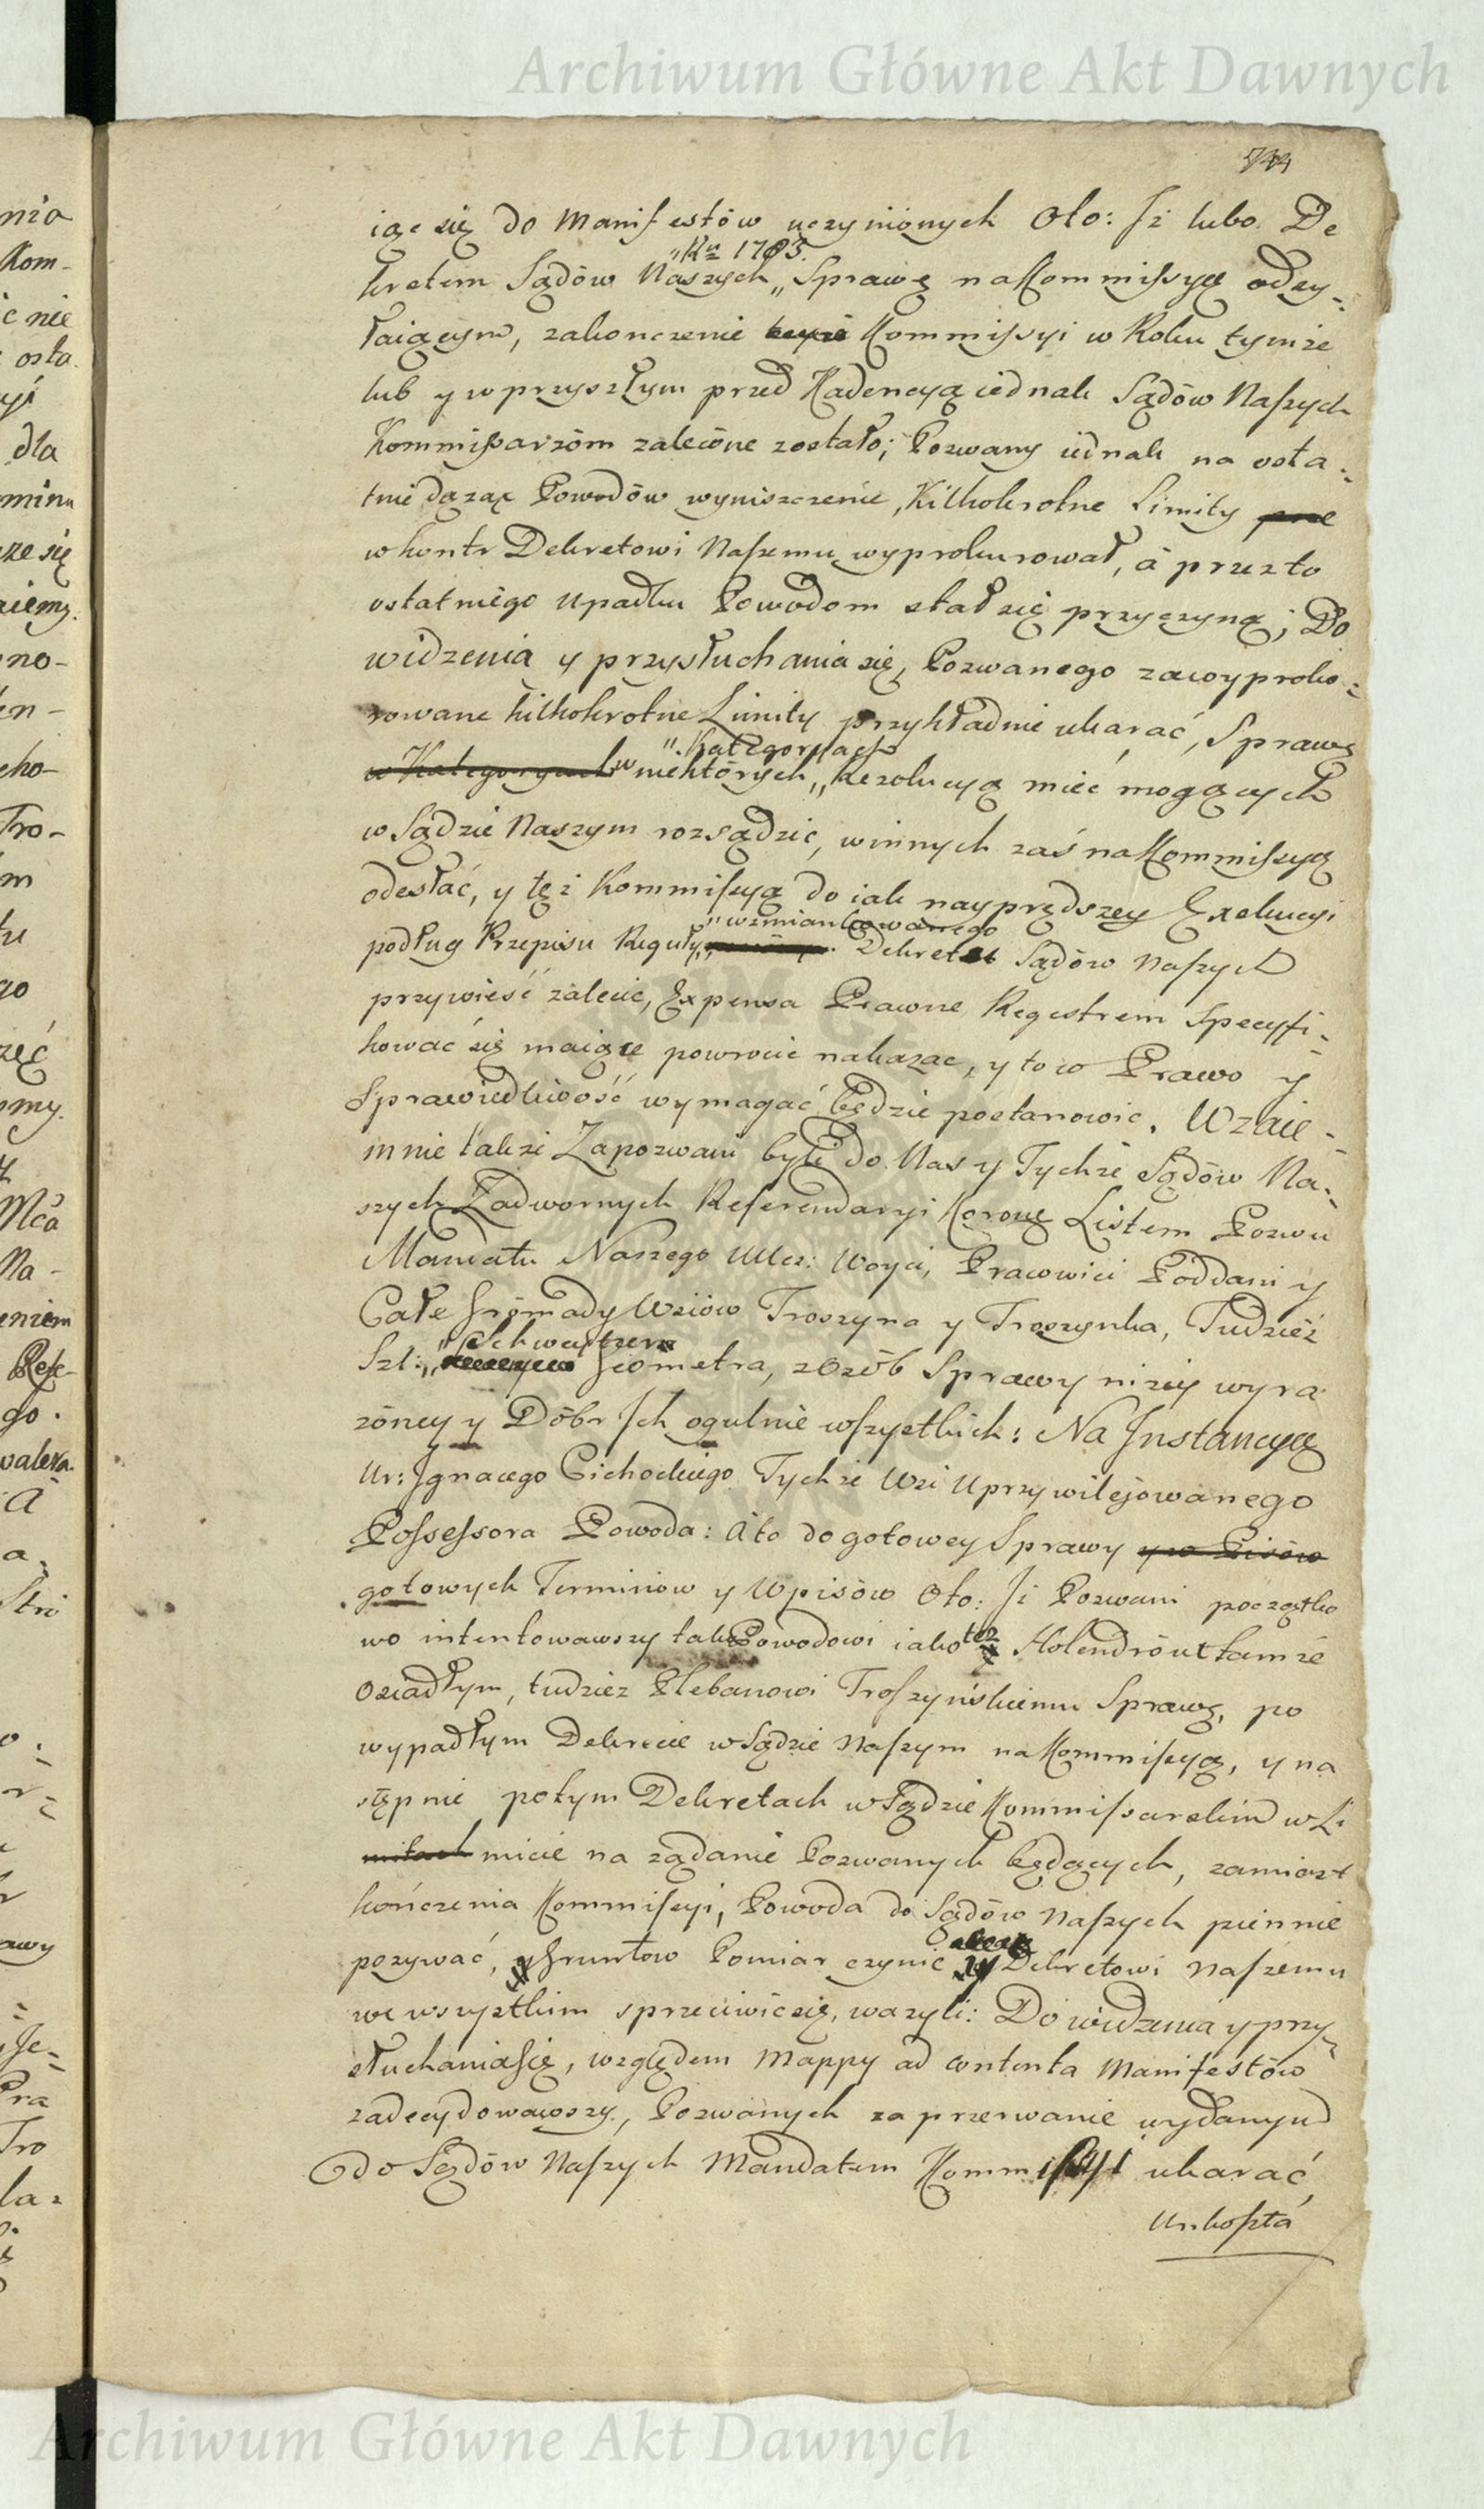 Archiwum Główne Akt Dawnych
744
iąc się do Manifestów uczynionych Oto: Jż lubo De
„Ru 1783.
kretem Sądów Naszych„ Sprawę na Kommissyą odsy-
łaiącym, zakonczenie teyże Kommissyi w Roku tymże
lub y w przyszłym przed Kadencyą iednak Sądów Naszych
Kommissarzóm zalecóne zostało; Pozwany iednak na osta-
tnie dążąc Powodów wyniszczenie, Kilkokrotne Limity
w kontr Dekretowi Naszemu wyprokurował, á przez to
ostatniego upadku Powodom stał się przyczyną; Do
widzenia y przysłuchania się, Pozwanego za wyproko-
rowane kilkokrotne Limity przykładnie ukarać, Sprawę
„Kategoryach
w Kategoryach w niektórych„ Rezolucyą mieć mogących
w Sądzie Naszym rozsądzić, w innych zaś na Kommissyą
odesłać, y tęż Kommissyą do iak nayprędszey Exekucyi
„wzmiankowanego
podług Przepisu Reguły„ Dekretu Sądów Naszych
przywieść zalecić, Expensa Prawne Regestrem Specyfi-
kować się maiące powrocić nakazać, y to w Prawo y
Sprawiedliwość wymagać będzie postanowić. Wzaie-
mnie także Zapozwani byli do Nas y Tychże Sądów Na-
szych Zadwornych Referendaryi Koroney Listem Pozwu
Mandatu Naszego Ucz: Woyci, Pracowici Poddani y
Całe Gromady Wsiów Troszyna y Troszynka, Tudzież
„Schwartzen
Szl:„ Jeometra, z Osób Sprawy niżey wyra
żóney y Dóbr Jch ogulnie wszystkich: Na Jnstancyą
Ur: Jgnacego Cichockiego Tychże Wsi Uprzywilejowanego
Possessora Powoda: A to do gotowey Sprawy y w Pisów
gotowych Terminow y Wpisów Oto: Ji Pozwani początko
wo intentowawszy tak Powodowi iako też Holendróm tamże
Osiadłym, tudzież Plebanowi Troszyńskiemu Sprawę, po
wypadłym Dekrecie w Sądzie Naszym na Kommissyą, y na
stępnie potym Dekretach w Sądzie Kommissarskim w Li
mitach micie na żądanie Pozwanych będących, zamiast
kończenia Kommissyi, Powoda do Sądów Naszych piennie
pozywać, Gruntow Pomiar czynić y Dekretowi Naszemu
we wszystkim sprzeciwić się, ważyli: Do widzenia y przy-
słuchania się, względem Mappy ad contenta Manifestów
zadecydowawszy, Pozwanych za przerwanie wydanym
do Sądów Naszych Mandatem Kommissyi ukarać,
Unkoszta
Archiwum Główne Akt Dawnych